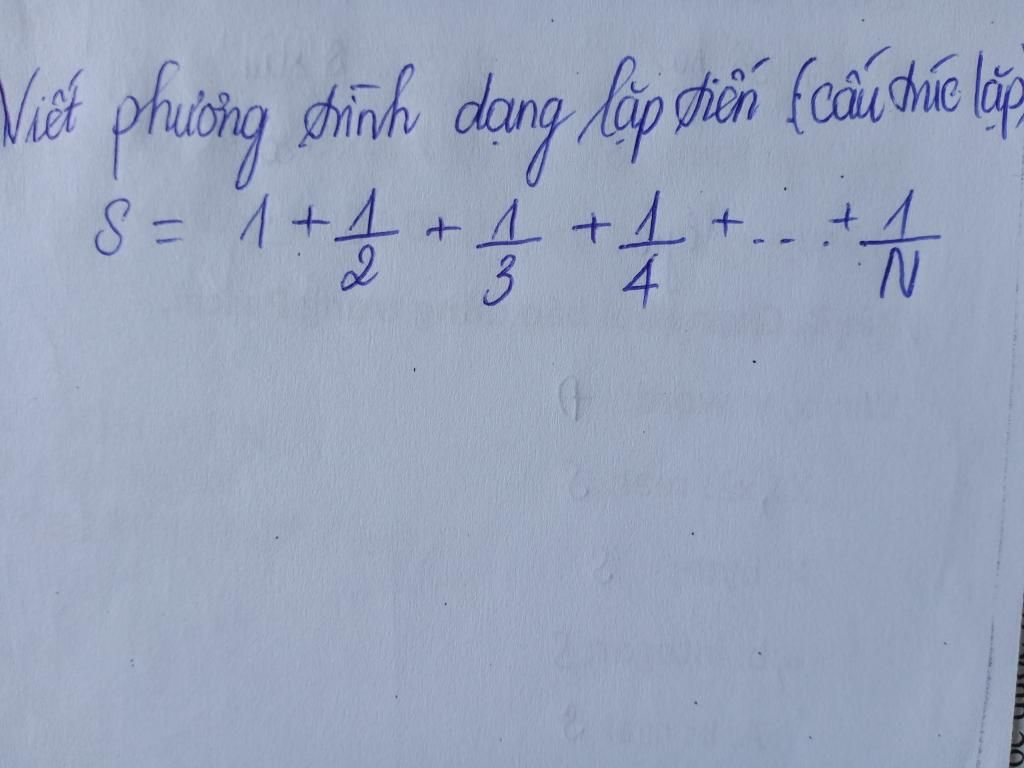 Viết phương trình dạng lặp tiến (cấu trúc lặp)
S = 1 + 1/2 + 1/3 + 1/4 + ... + 1/N